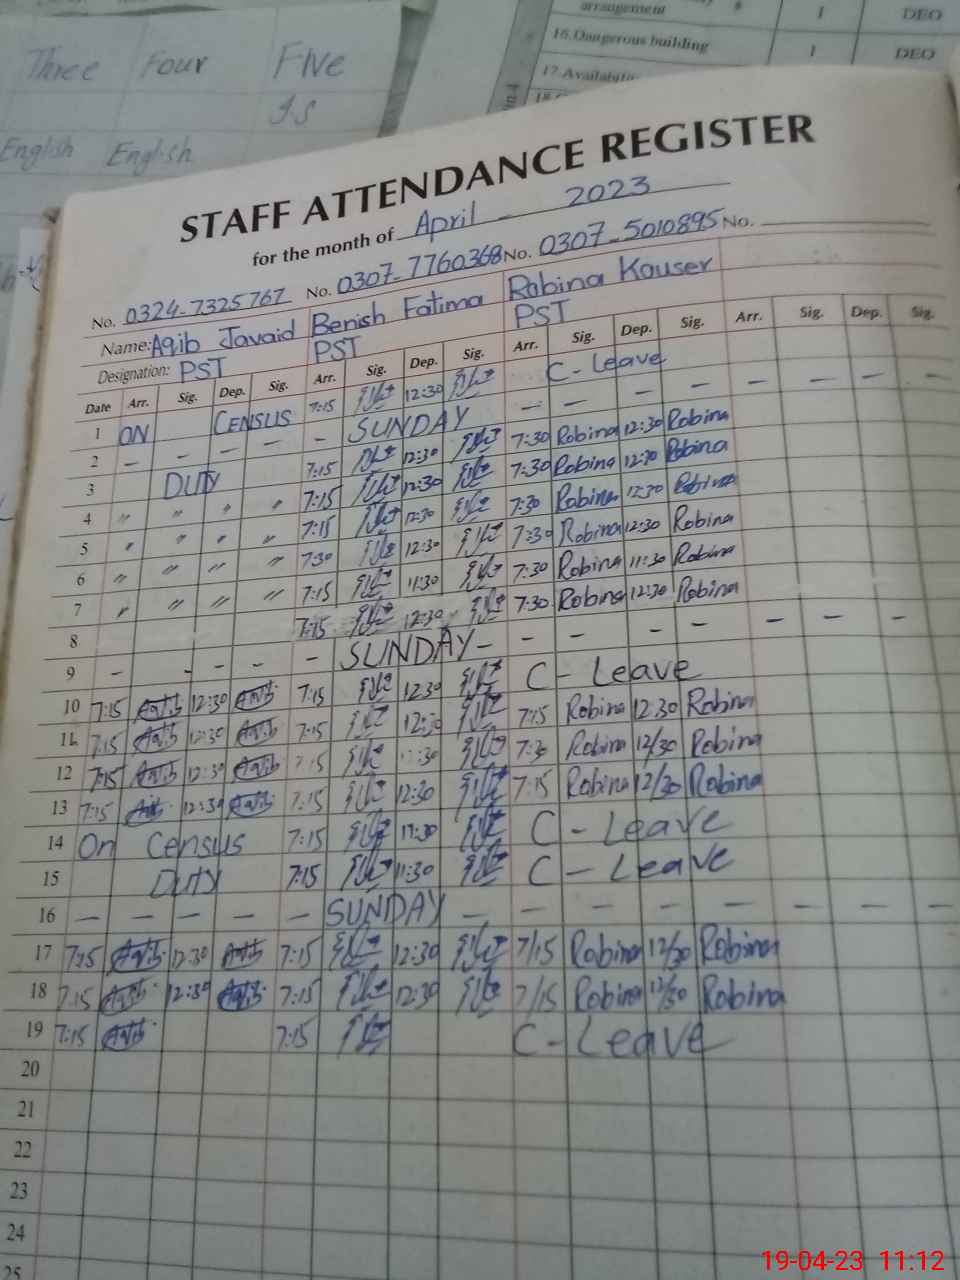 Three Four Five
I.S
English English
arrangement 1 DEO
16.Dangerous building 1 DEO
17.
STAFF ATTENDANCE REGISTER
for the month of April - 2023
No. 0324-7325767 No. 0307-7760368 No. 0307-5010895 No.
Name: Aqib Javaid Benish Fatima Robina Kauser
Designation: PST PST PST
Date Arr. Sig. Dep. Sig. Arr. Sig. Dep. Sig. Arr. Sig. Dep. Sig. Arr. Sig. Dep. Sig.
1 ON CENSUS 7:15 12:30 C-Leave
2 - - - - - SUNDAY - - - - - - - -
3 DUTY 7:15 12:30 7:30 Robina 12:30 Robina
4 " " " " 7:15 12:30 7:30 Robina 12:30 Robina
5 " " " " 7:15 12:30 7:30 Robina 12:30 Robina
6 " " " " 7:30 12:30 7:30 Robina 12:30 Robina
7 " " " " 7:15 11:30 7:30 Robina 11:30 Robina
8 7:15 12:30 7:30 Robina 12:30 Robina
9 - - - - - SUNDAY - - - - - - - -
10 7:15 Aqib 12:30 Aqib 7:15 12:30 C - Leave
11 7:15 Aqib 12:30 Aqib 7:15 12:30 7:15 Robina 12:30 Robina
12 7:15 Aqib 12:30 Aqib 7:15 7:30 Robina 12/30 Robina
13 7:15 Aqib 12:30 Aqib 7:15 12:30 7:15 Robina 12/30 Robina
14 On Census 7:15 11:30 C - Leave
15 Duty 7:15 11:30 C - Leave
16 - - - - - SUNDAY - - - - - - - - -
17 7:15 Aqib 12:30 Aqib 7:15 12:30 7/15 Robina 12/30 Robina
18 7:15 Aqib 12:30 Aqib 7:15 12:30 7/15 Robina 12/30 Robina
19 7:15 Aqib 7:15 C-Leave
20
21
22
23
24
25
19-04-23 11:12